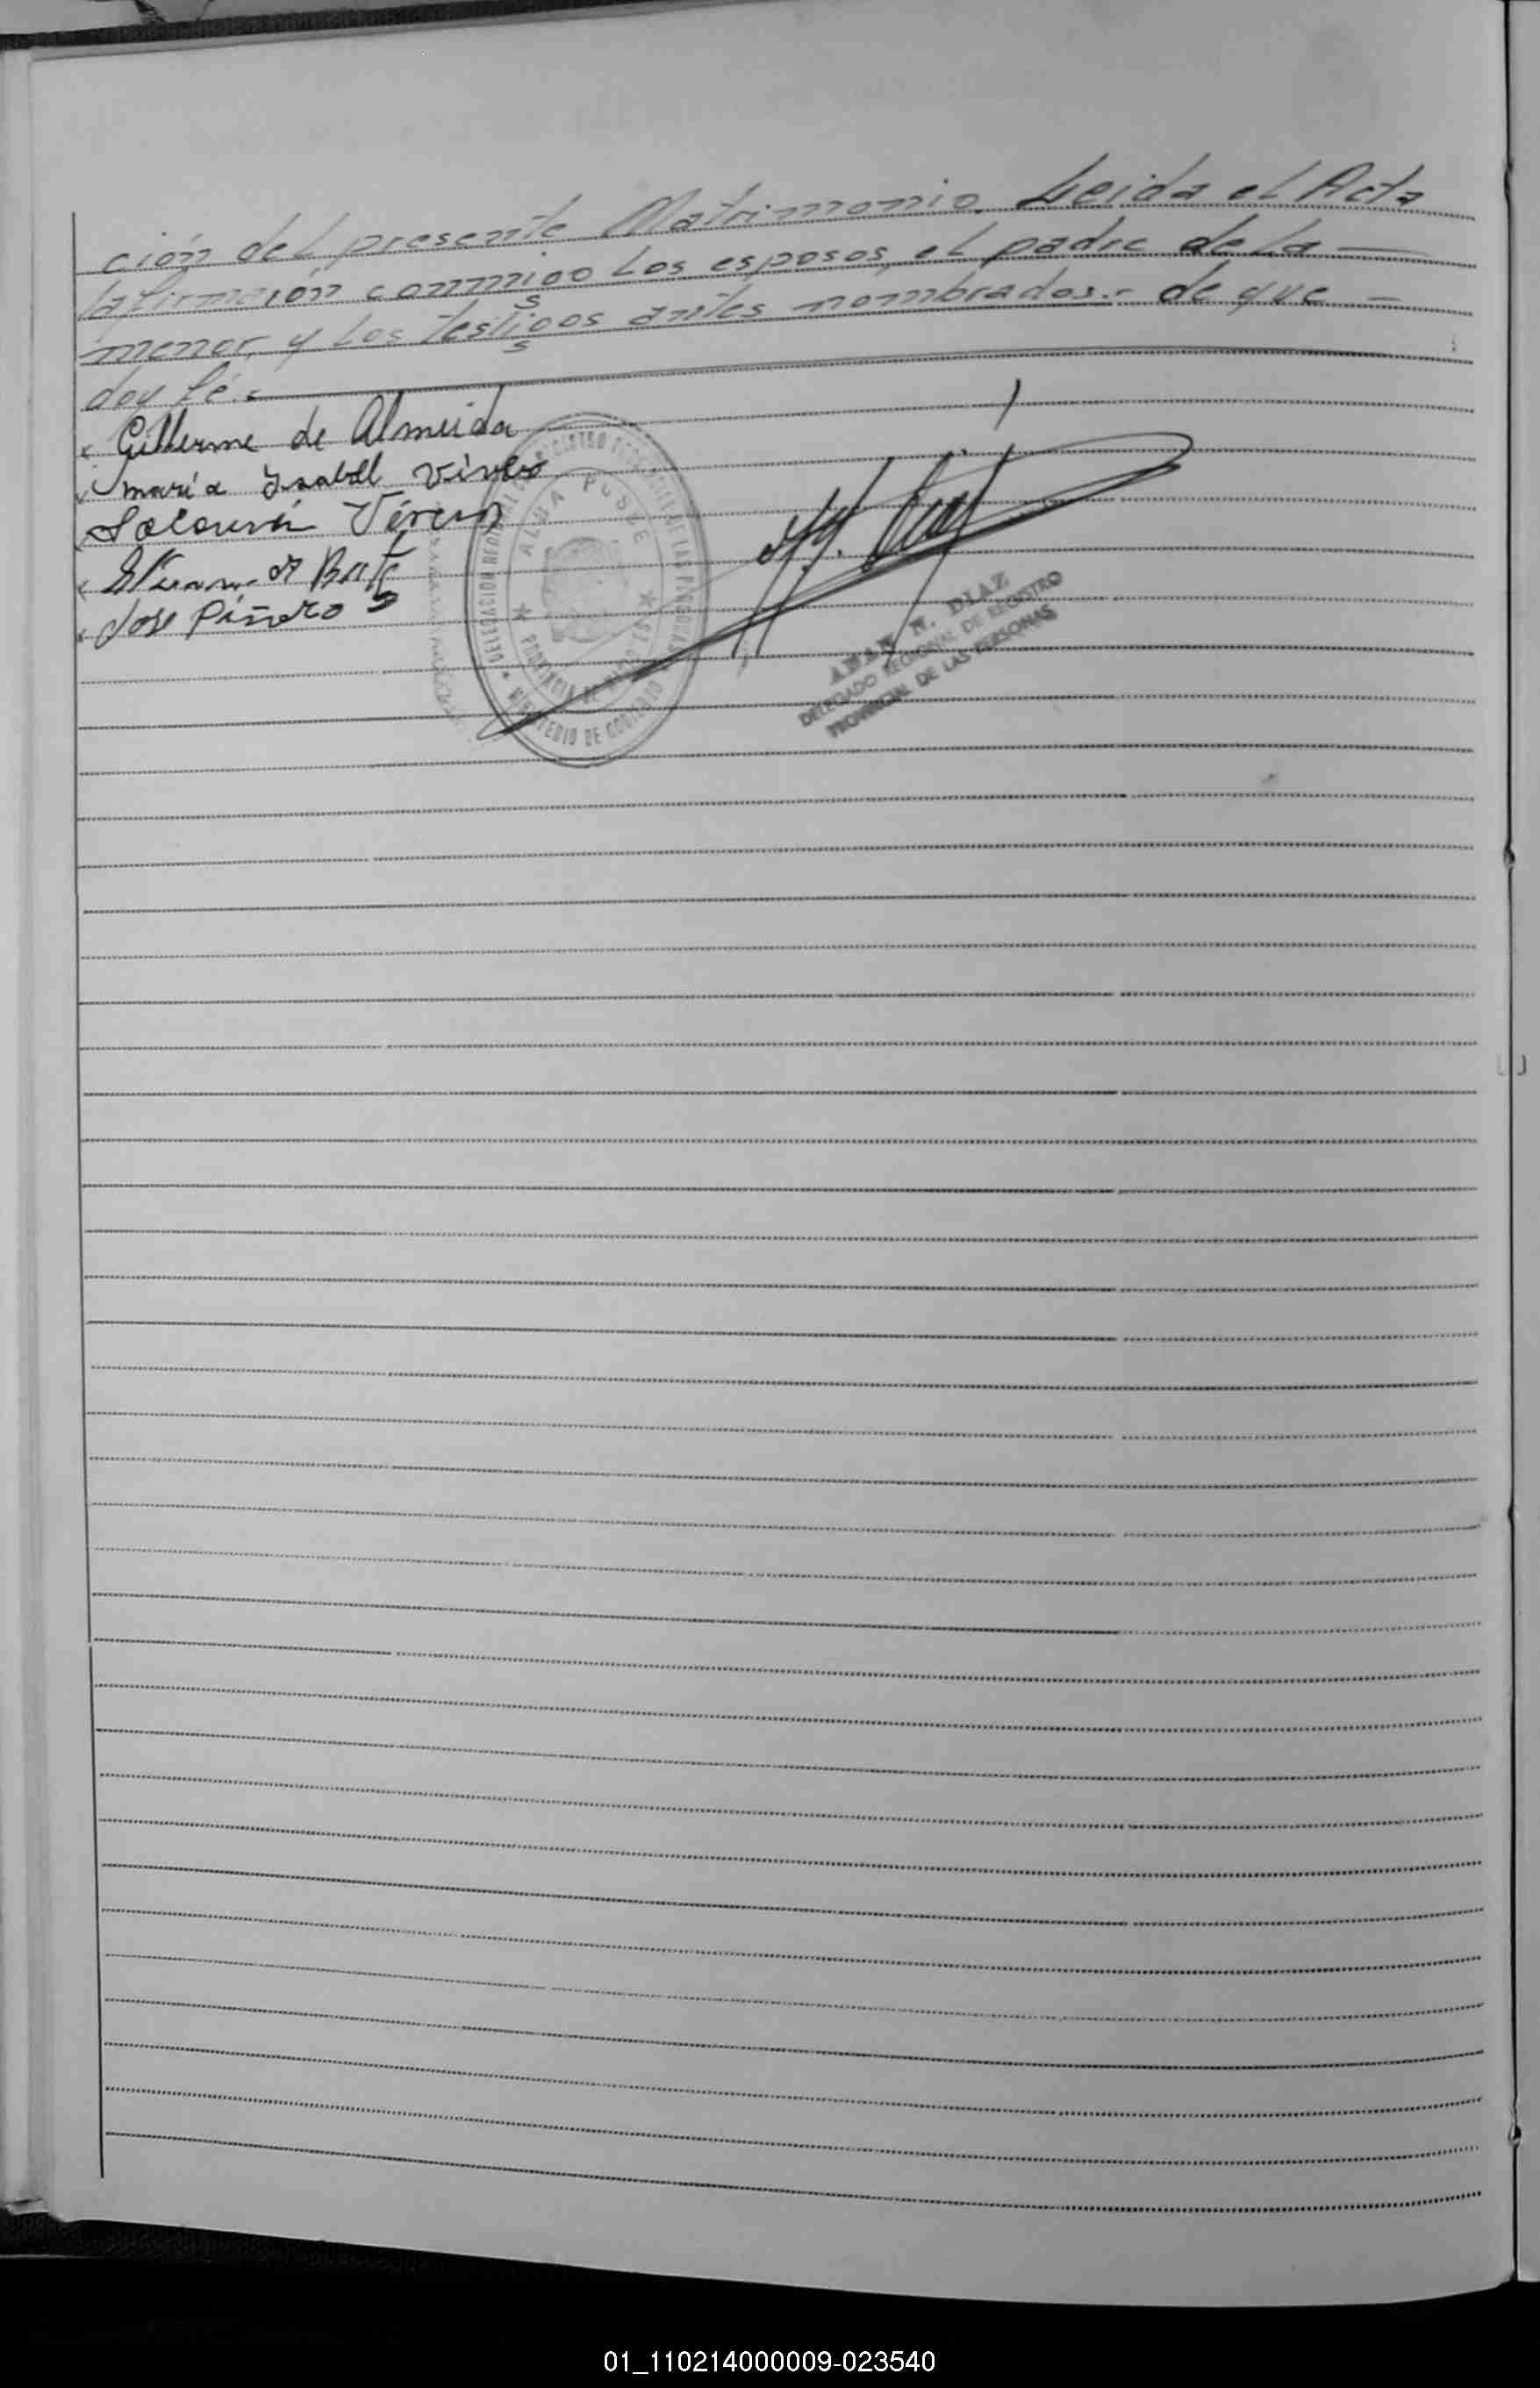 ción del presente Matrimonio. Leida el Acta
la firmarón conmigo los esposos, el padre de la
menor, y los testigos antes nombrados.- de que
doy fé.-
Gillerme de Almeida
maria Isabel
José Piñero
ALBA POSSE
DELEGACION
REGISTRO PROVINCIAL DE LAS PERSONAS
PROVINCIA DE MISIONES
MINISTERIO DE GOBIERNO
N. DIAZ
DELEGADO REGIONAL DE REGISTRO
PROVINCIAL DE LAS PERSONAS
01_110214000009-023540